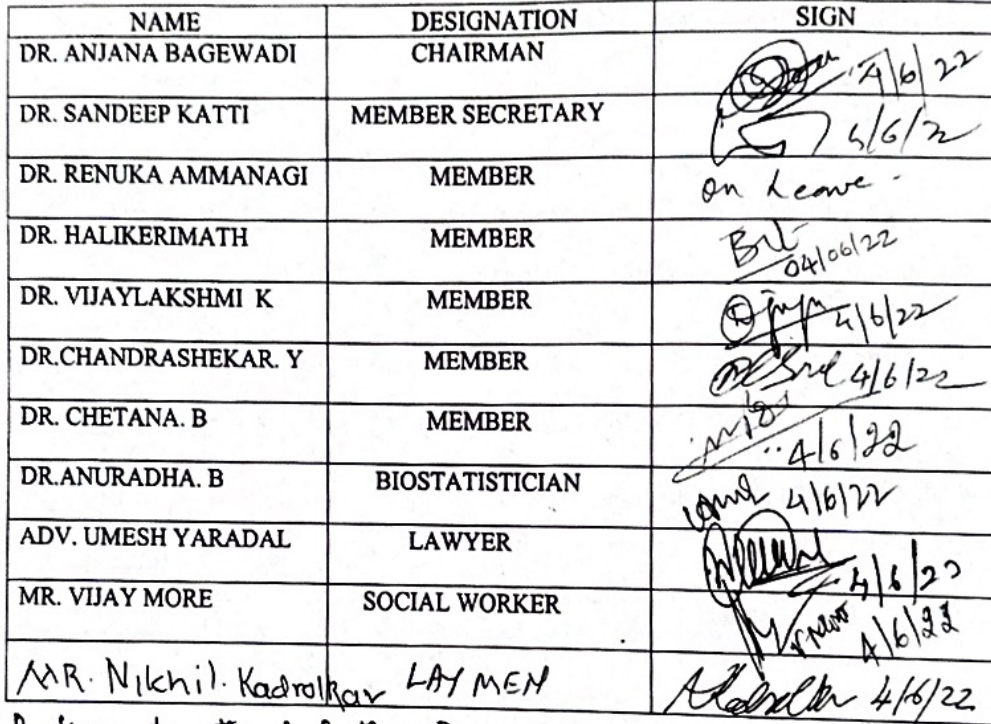 NAME DESIGNATION SIGN
DR. ANJANA BAGEWADI CHAIRMAN 4/6/22
DR. SANDEEP KATTI MEMBER SECRETARY 4/6/22
DR. RENUKA AMMANAGI MEMBER on Leave -
DR. HALIKERIMATH MEMBER 04/06/22
DR. VIJAYLAKSHMI K MEMBER 4/6/22
DR.CHANDRASHEKAR. Y MEMBER 4/6/22
DR. CHETANA. B MEMBER 4/6/22
DR.ANURADHA. B BIOSTATISTICIAN 4/6/22
ADV. UMESH YARADAL LAWYER 4/6/22
MR. VIJAY MORE SOCIAL WORKER 4/6/22
MR. Nikhil. Kadrolkar LAY MEN 4/6/22